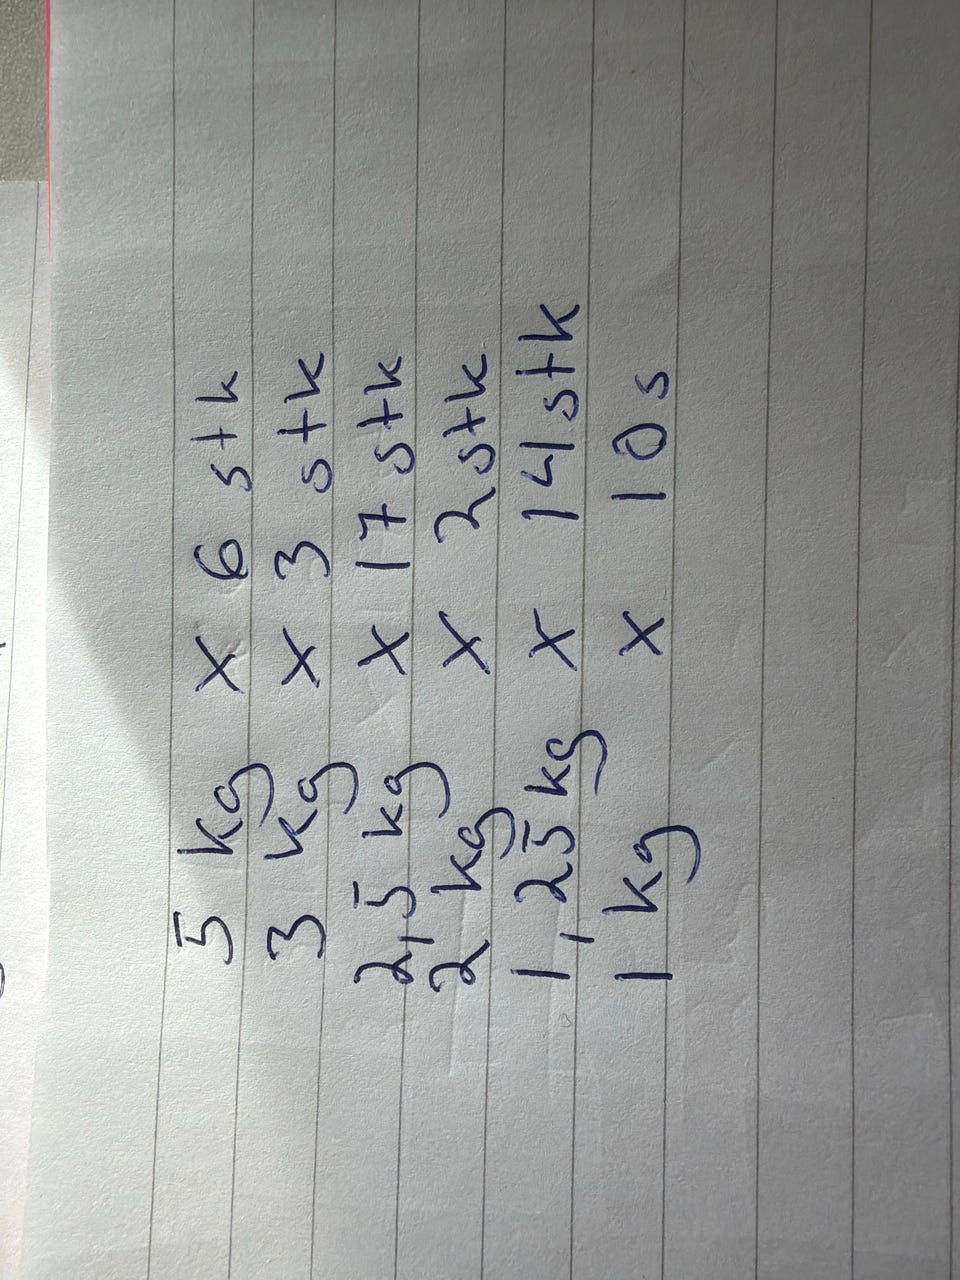 5 kg x 6 stk
3 kg x 3 stk
2,5 kg x 17 stk
2 kg x 2 stk
1,25 kg x 14 stk
1 kg x 10 s